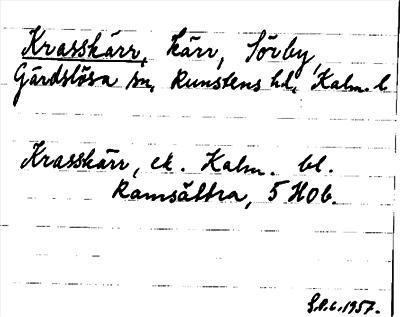 Krasskärr, kärr, Sörby,
Gärdslösa sn, Runstens hd, Kalm. l
Krasskärr, ek. Kalm. bl.
Ramsättra, 5 H0b.
1957.